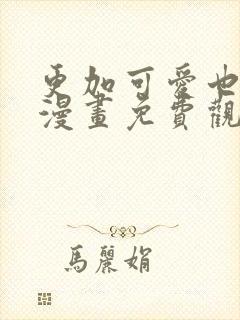 更加可愛也
漫畫免費觀
馬麗娟